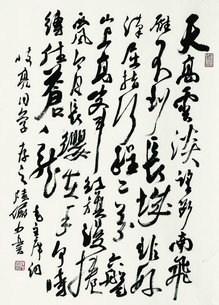 天高雲淡望斷南飛
雁不到長城非好
漢屈指行程二万六盤
山上高峰紅旗漫捲
西風今日長纓在手何時
縛住蒼龍毛主席詞
同學存之書